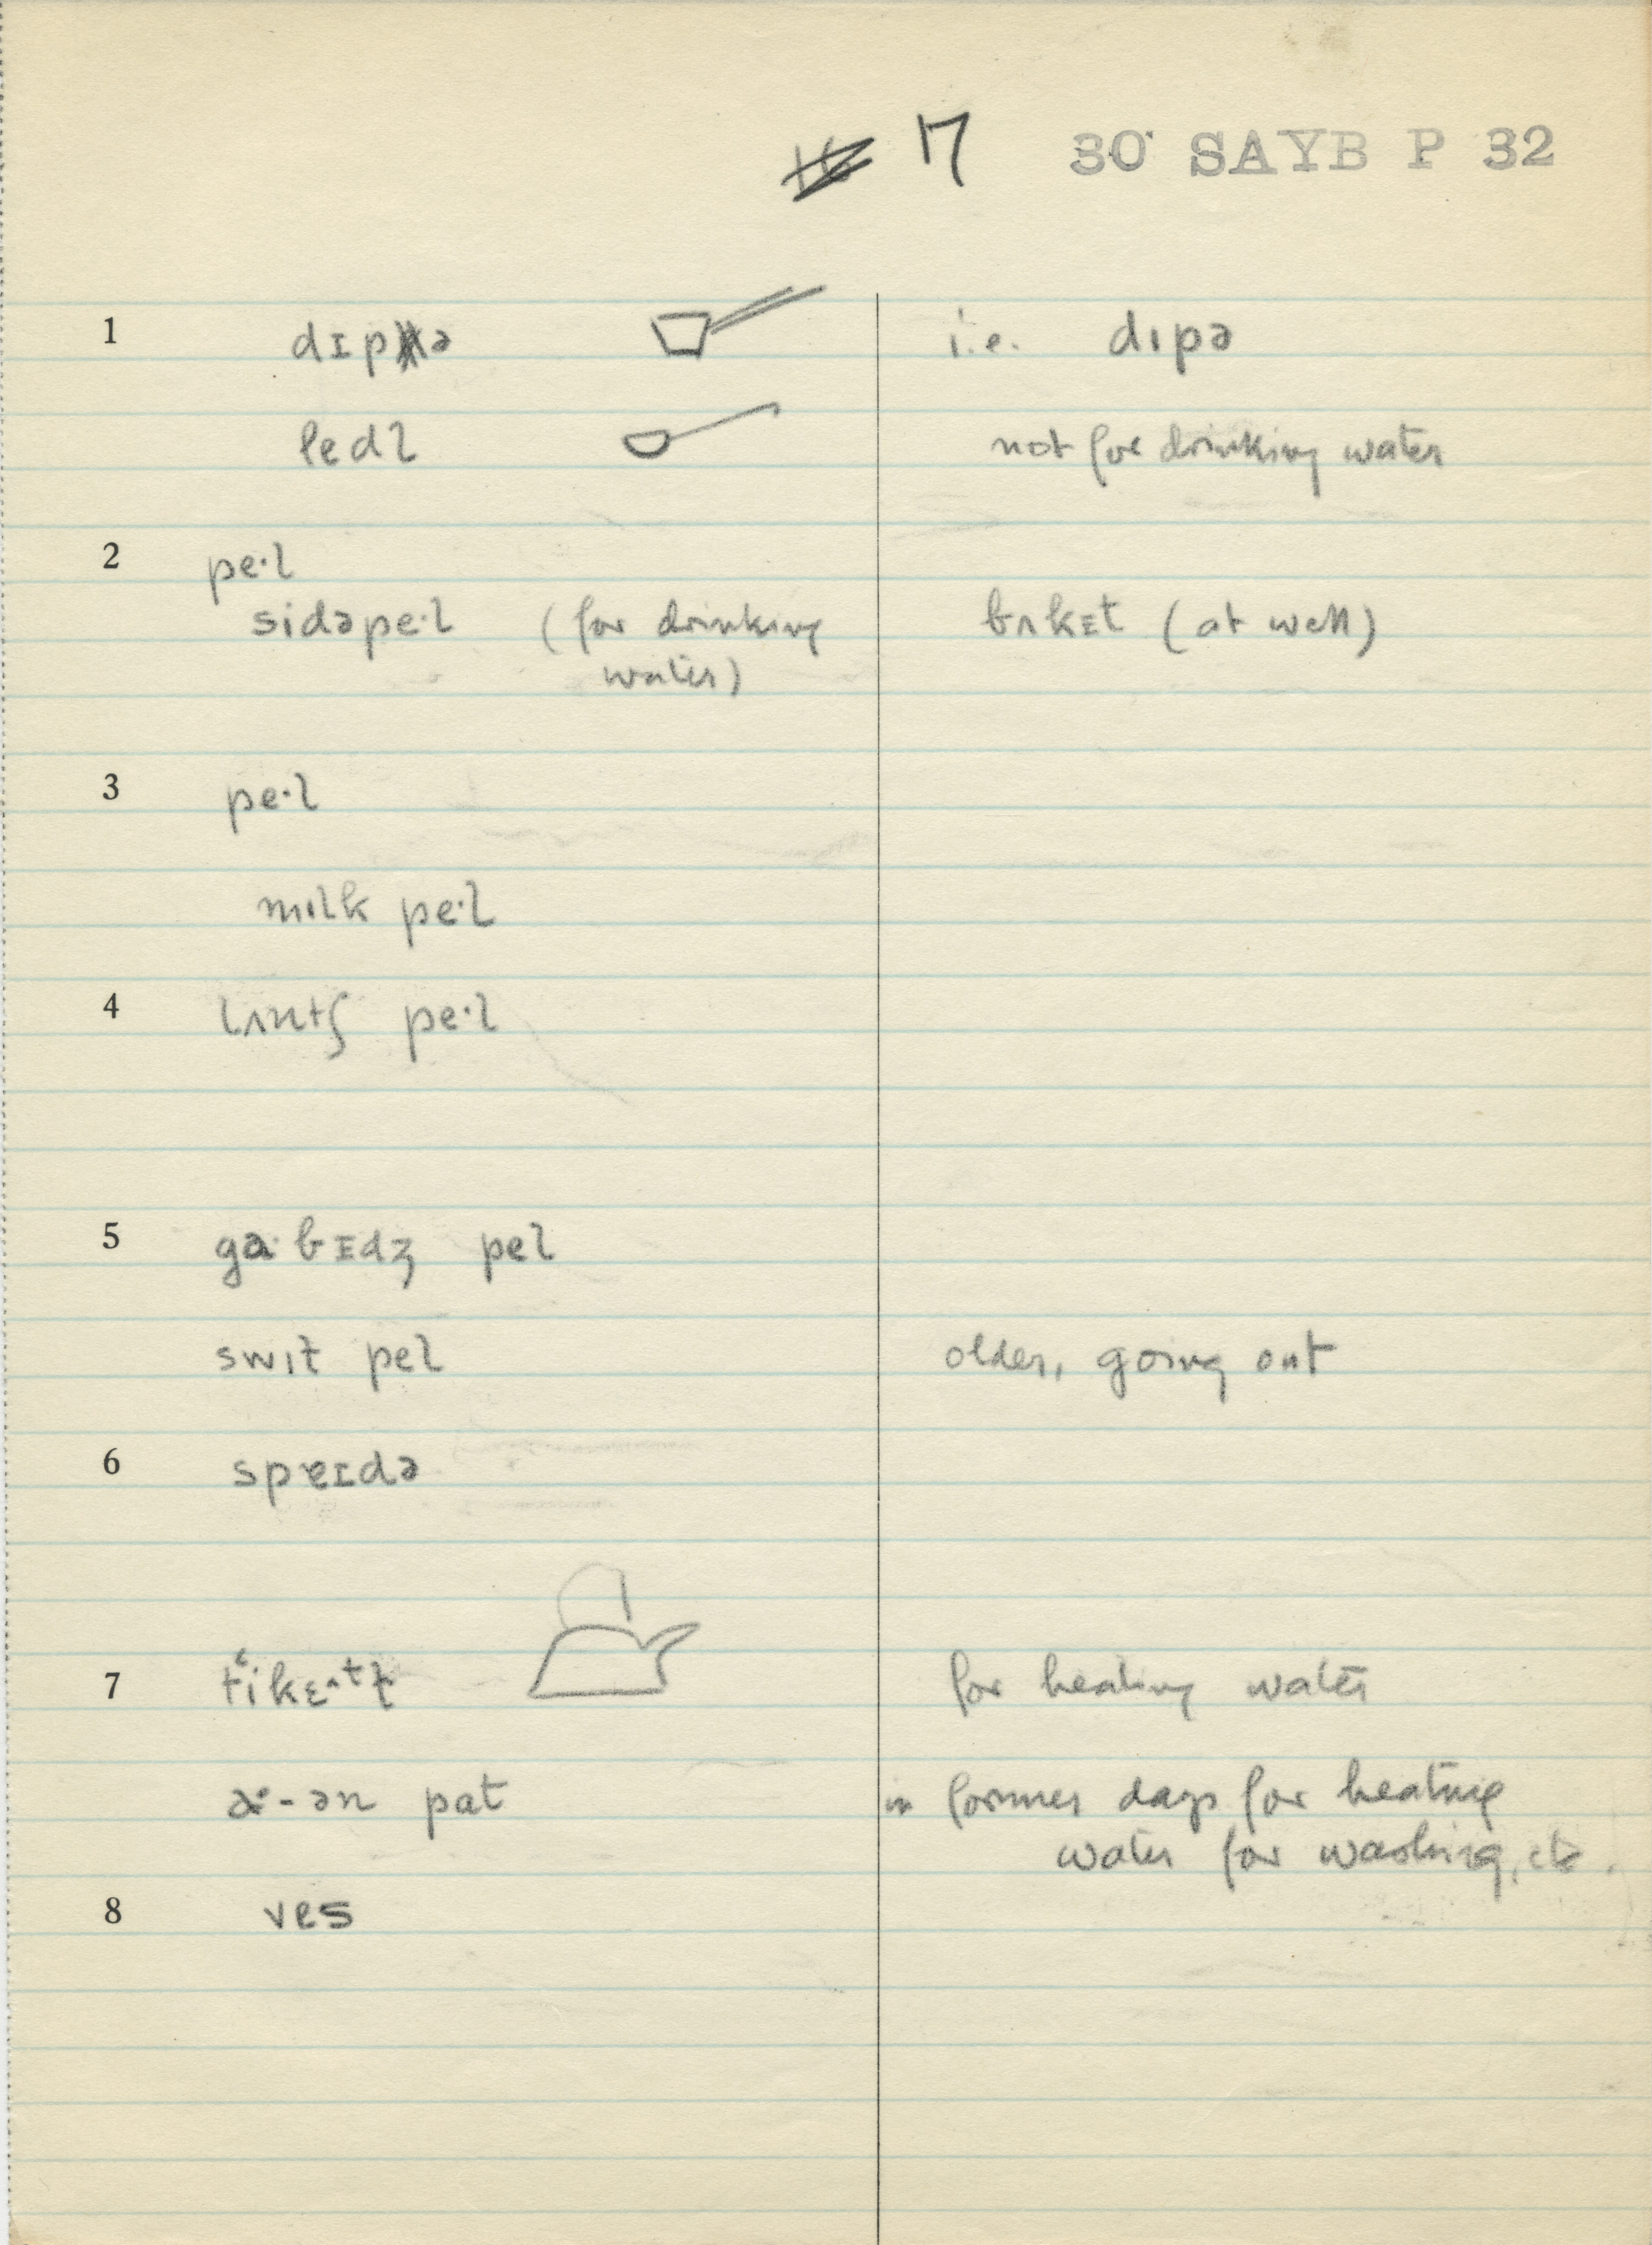 17 30 SAYB P 32
1 dɪpə i.e. dɪpə
ledl not for drinking water
2 pe·l
sidəpe·l (for drinking bʌkɛt (at well)
water)
3 pe·l
mɪlk pe·l
4 lʌntʃ pe·l
5 ga·bɪdʒ pel
swɪt pel older, going out
6 speɪdə
7 for heating water
pat in former days for heating
water for washing, etc.
8 ves